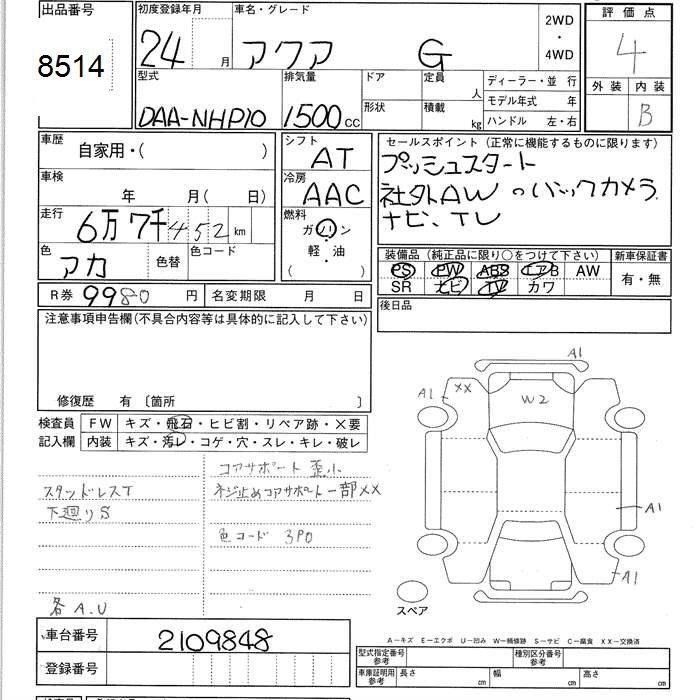 出品番号
8514
初度登録年月
24 月
車名・グレード
アクア G
2WD
・
4WD
評価点
4
外装 内装
B
型式
DAA-NHP10
排気量
1500 CC
ドア
形状
定員 人
積載 kg
ディーラー・並 行
モデル年式 年
ハンドル 左・右
車歴
自家用・( )
車検
年 月( 日)
走行
6万7千452 km
色
アカ
色替
色コード
シフト
AT
冷房
AAC
燃料
ガソリン
・
軽・油
( )
セールスポイント(正常に機能するものに限ります)
プッシュスタート
社外AW ◦バックカメラ
ナビ、TV
装備品(純正品に限り○をつけて下さい)
PS PW ABS エアB AW
SR ナビ TV カワ
新車保証書
有・無
R券 9980 円
名変期限 月 日
後日品
注意事項申告欄(不具合内容等は具体的に記入して下さい)
修復歴 有〔箇所 〕
検査員
記入欄
FW キズ・飛石・ヒビ割・リペア跡・X要
内装 キズ・汚レ・コゲ・穴・スレ・キレ・破レ
コアサポート 歪小
スタッドレスT
ネジ止めコアサポート一部XX
下廻りS
色コード 3P0
各A.U
A1
A1
XX
W2
A1
A1
スペア
車台番号
2109848
登録番号
A−キズ E−エクボ U−凹み W−補修跡 S−サビ C−腐食 XX−交換済
型式指定番号
参考
種別区分番号
参考
車庫証明用
参考
長さ cm
幅 cm
高さ cm